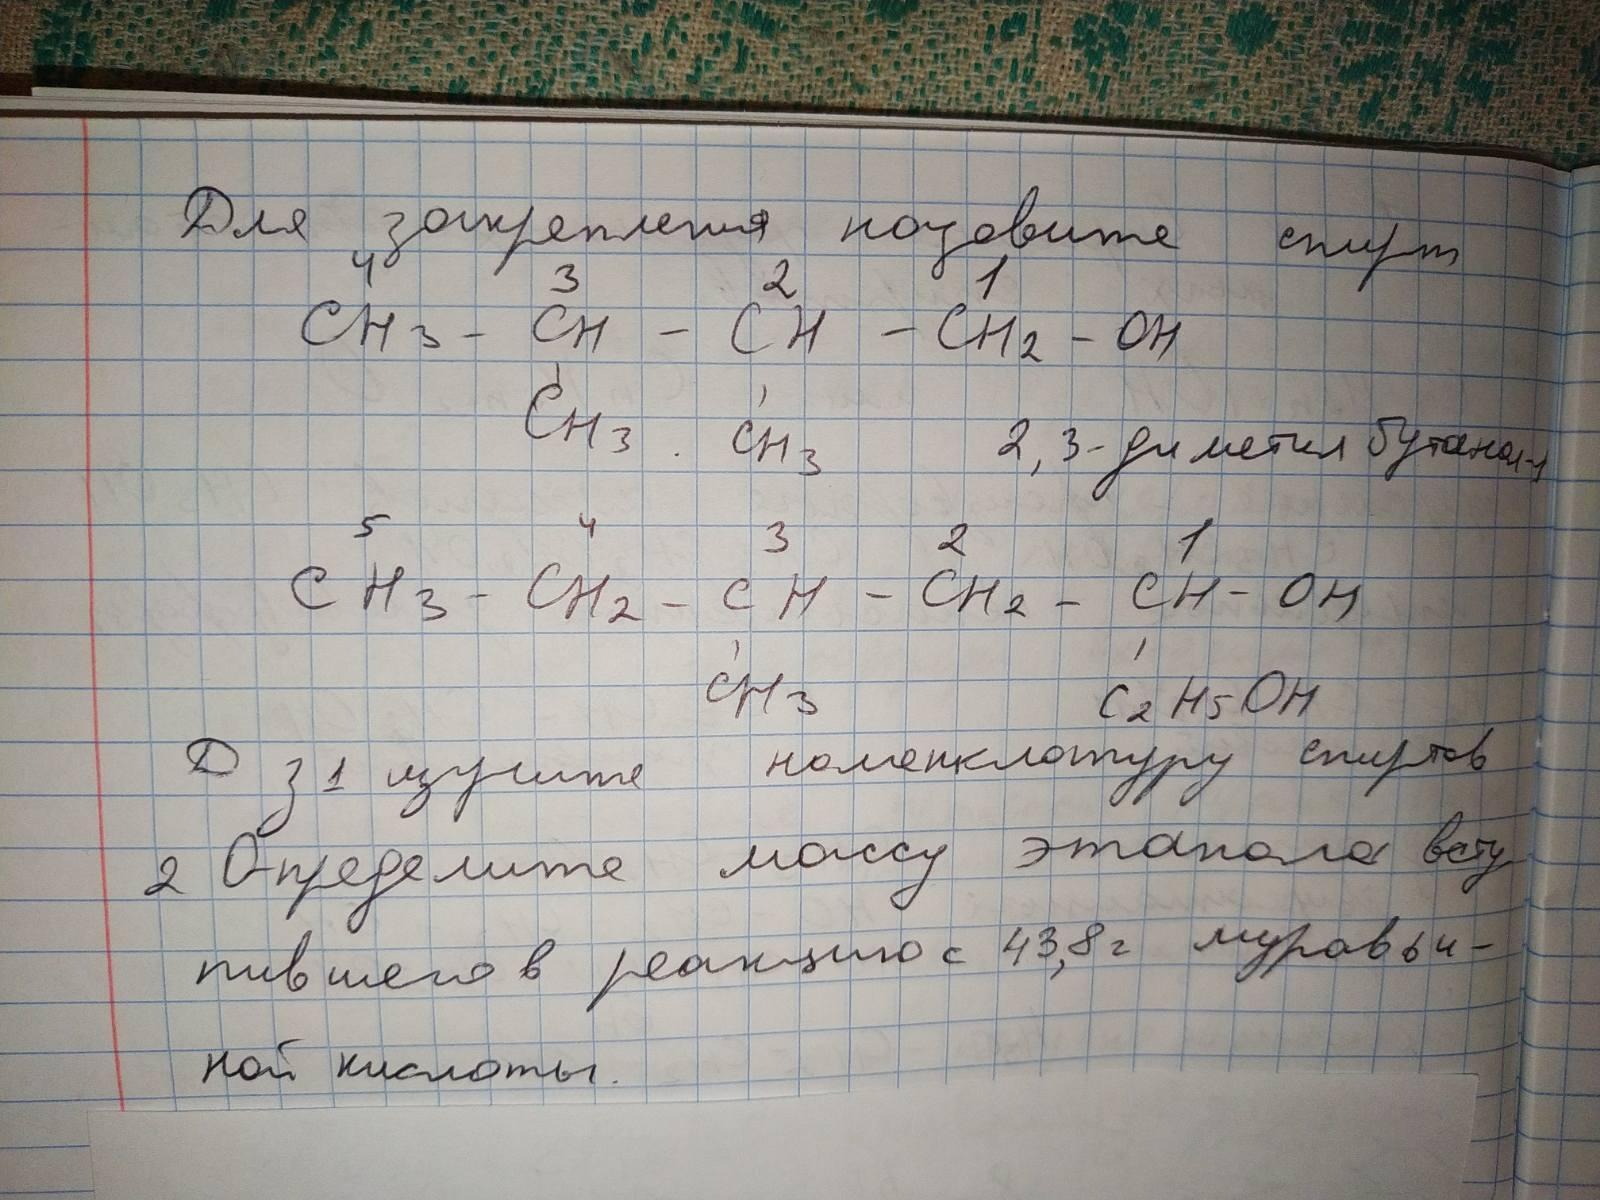 Для закрепления назовите спирт
4 3 2 1
CH3 - CH - CH - CH2 - OH
CH3 . CH3 2,3-диметил бутанол-1
5 4 3 2 1
CH3 - CH2 - CH - CH2 - CH - OH
CH3 C2H5OH
Д з 1 изучите номенклатуру спиртов
2 Определите массу этанола всту
пившего в реакцию с 43,8г муравьи-
ной кислоты.